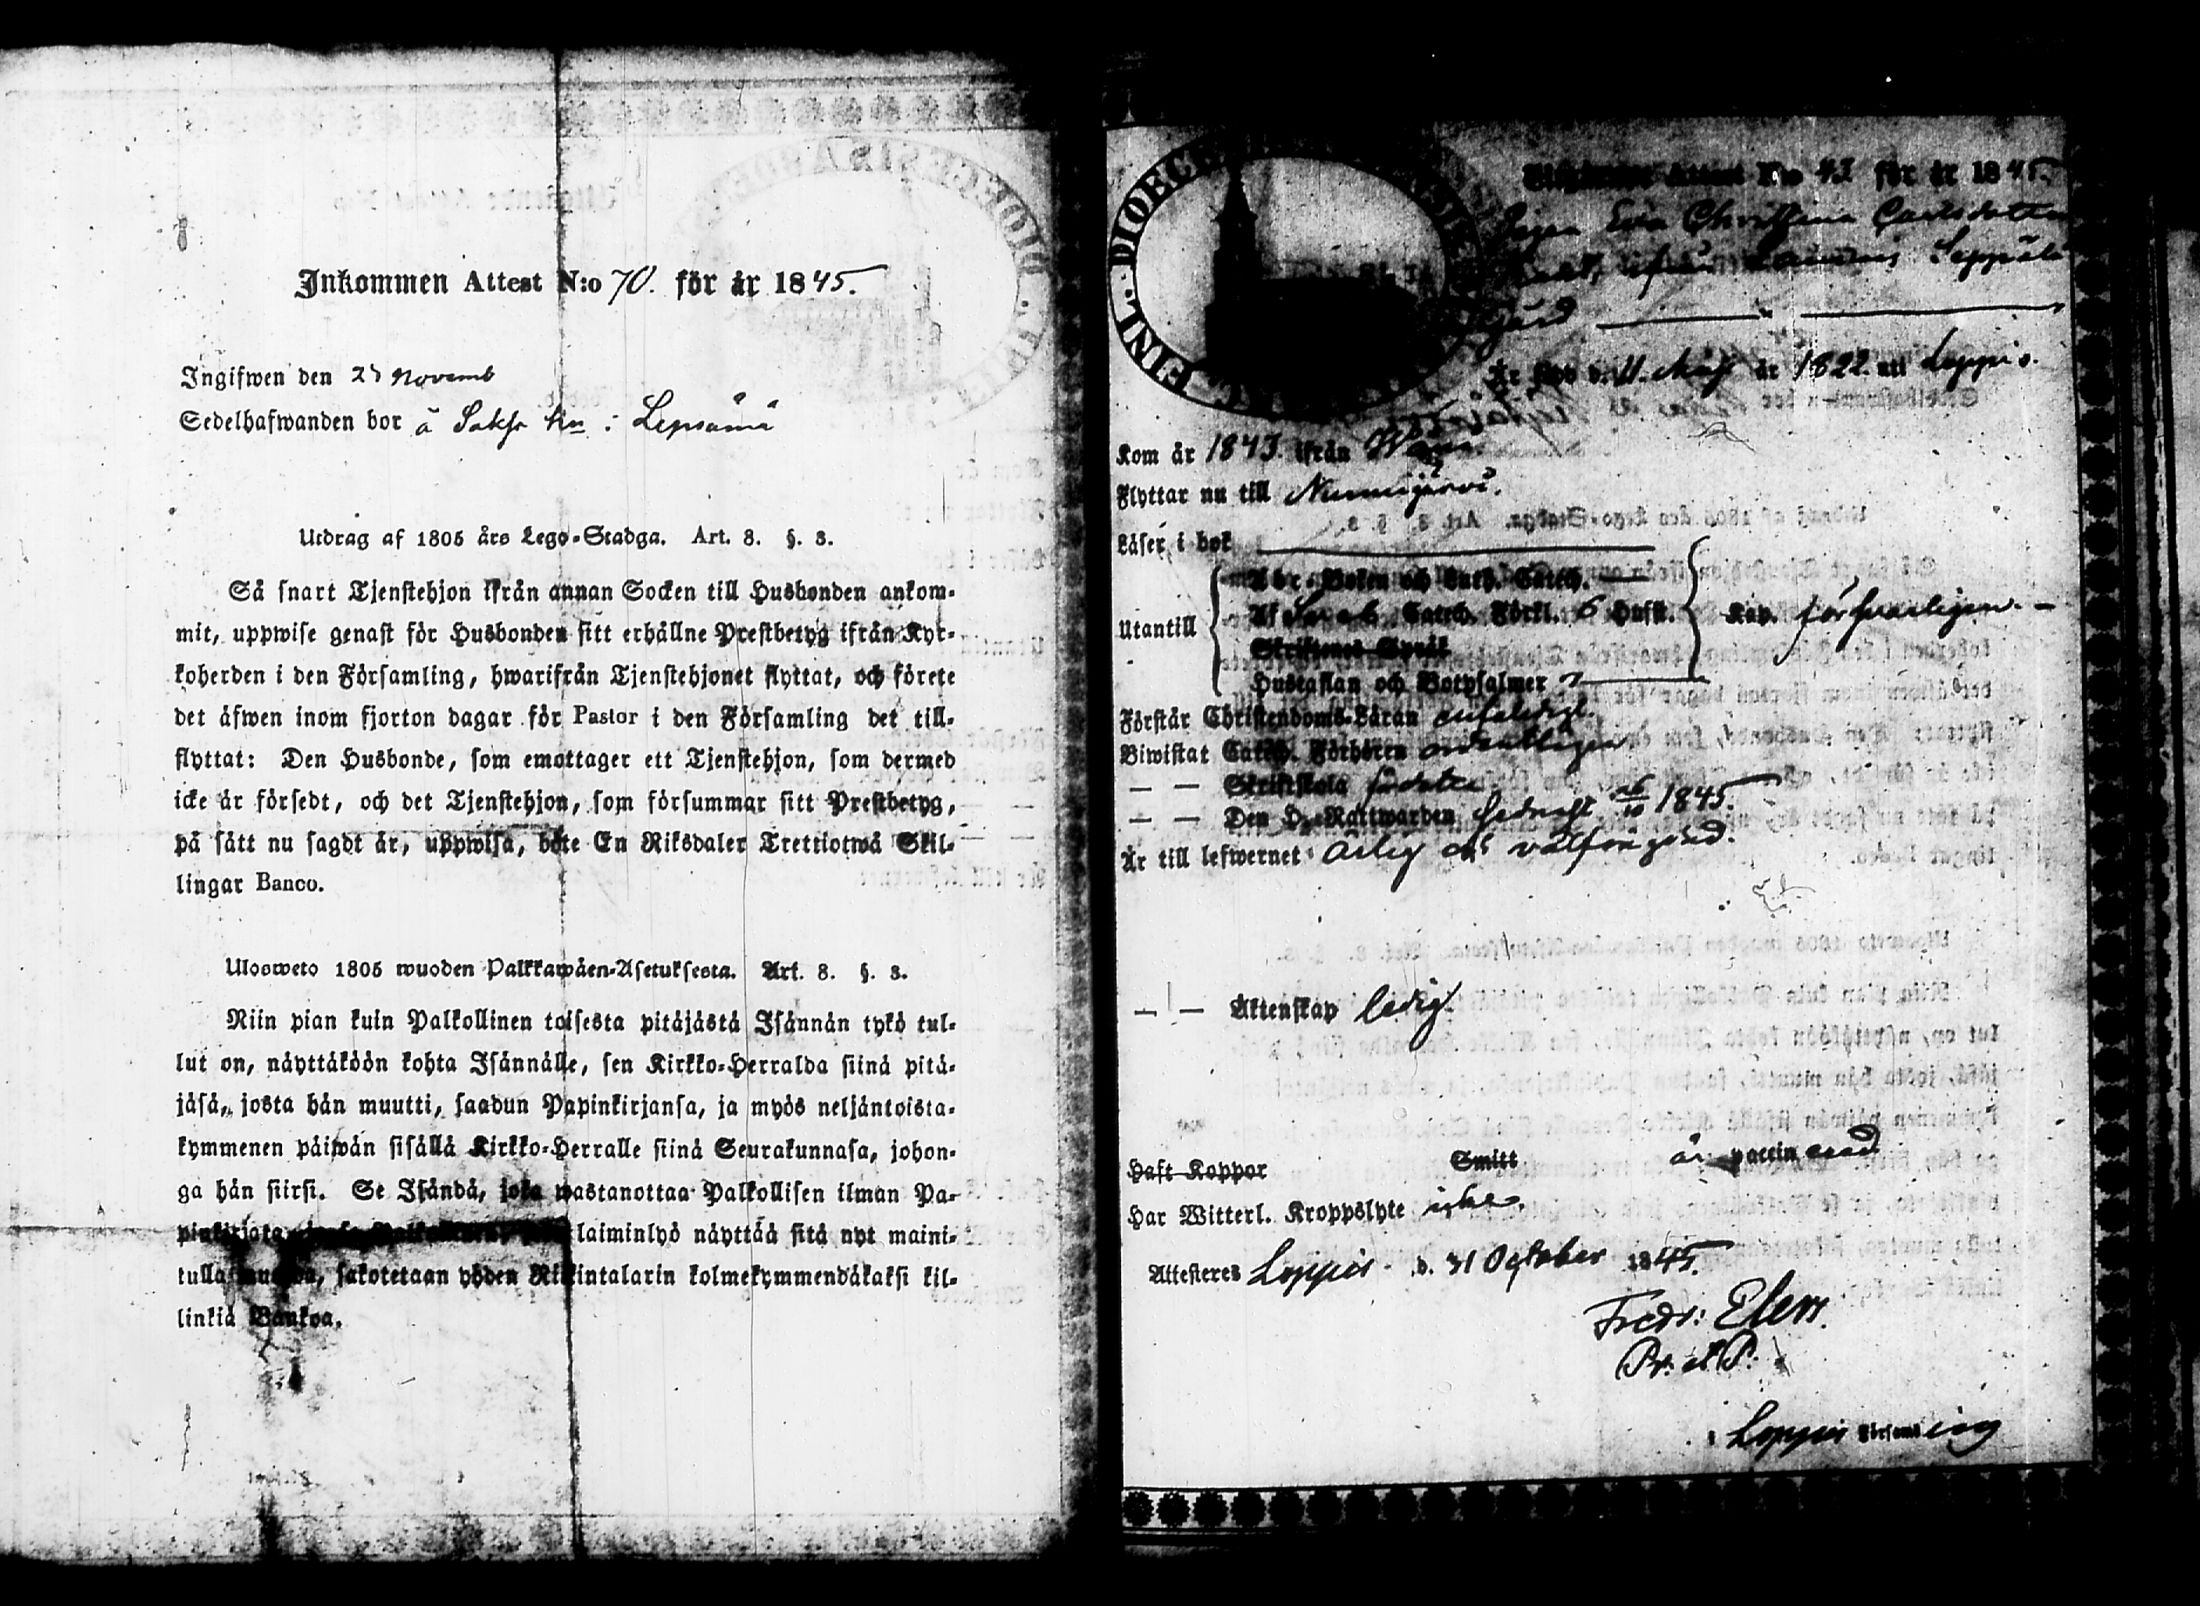 Inkommen Attest N:o 70. för år 1845.
Ingifwen den Novemb
Sedelhafwanden bor å Lepsämä
Utdrag af 1805 års Lego-Stadga. Art. 8. §. 3.
Så snart Tjenstehjon ifrån annan Socken till Husbonden ankom-
mit, uppwise genast för Husbonden sitt erhållne Prestbetyg ifrån Kyr-
koherden i den Församling, hwarifrån Tjenstehjonet flyttat, och förete
det äfwen inom fjorton dagar för Pastor i den Församling det till-
flyttat: Den Husbonde, som emottager ett Tjenstehjon, som dermed
icke är försedt, och det Tjenstehjon, som försummar sitt Prestbetyg,
på sätt nu sagdt är, uppwisa, böte En Riksdaler Trettiotwå Skil-
lingar Banco.
Ulosweto 1805 wuoden Palkkawäen-Asetuksesta. Art. 8. §. 3.
Niin pian kuin Palkollinen toisesta pitäjästä Isännän tykö tul-
lut on, näyttäköön kohta Isännälle, sen Kirkko-Herralda siinä pitä-
jäsä, josta hän muutti, saadun Papinkirjansa, ja myös neljäntoista-
kymmenen päiwän sisällä Kirkko-Herralle siinä Seurakunnasa, johon-
ga hän siirsi. Se Isändä, joka wastanottaa Palkollisen ilman Pa-
pinkirjata, laiminlyö näyttää sitä nyt maini-
tulla muodon, sakotetaan yhden Riikintalarin kolmekymmendäkaksi kil-
linkiä Bankoa.
DIOEC FINL.
Attest N:o för år 1845.
Pigan Eva Christina Carlsdotter
ifrån Seppälä
gård
Är född d. 11. år 1822. uti Loppis.
Kom år 1843. ifrån
Flyttar nu till Nurmijärvi.
Läser i bok
Utantill
Abc-Boken och Luth. Catech.
Af Catech. Förkl. 6 Hufst. Kap. försvarligen.
Skriftenes Språk
Hustaflan och Botpsalmer
Förstår Christendoms-Läran enfaldigt.
Biwistat Catech. Förhören ordentligen
— — Skriftskola
— — Den H. Nattwarden sednast 1845.
Är till lefwernet ärlig och välfrägdad.
— — Äktenskap ledig.
Haft Koppor Smitt är vaccinerad
Har Witterl. Kroppslyte icke.
Attesteres Loppis d. 31 October 1845.
Fredr: Elers.
i Loppis Församling